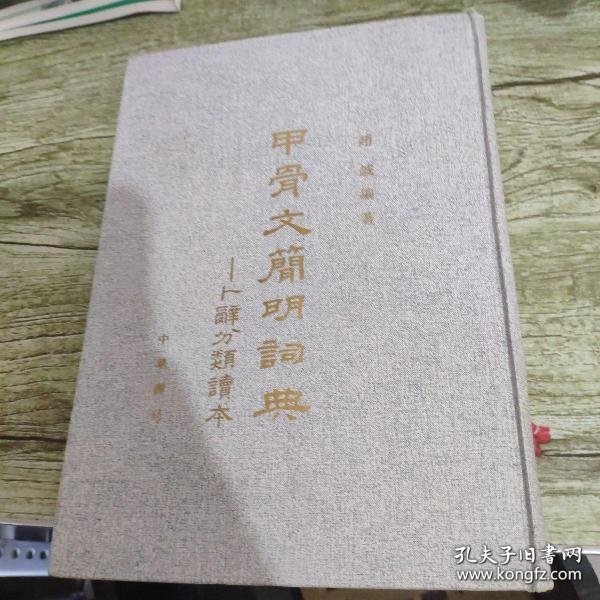 趙誠編著
甲骨文簡明詞典
—卜辭分類讀本
中華書局
孔夫子旧书网
www.kongfz.com